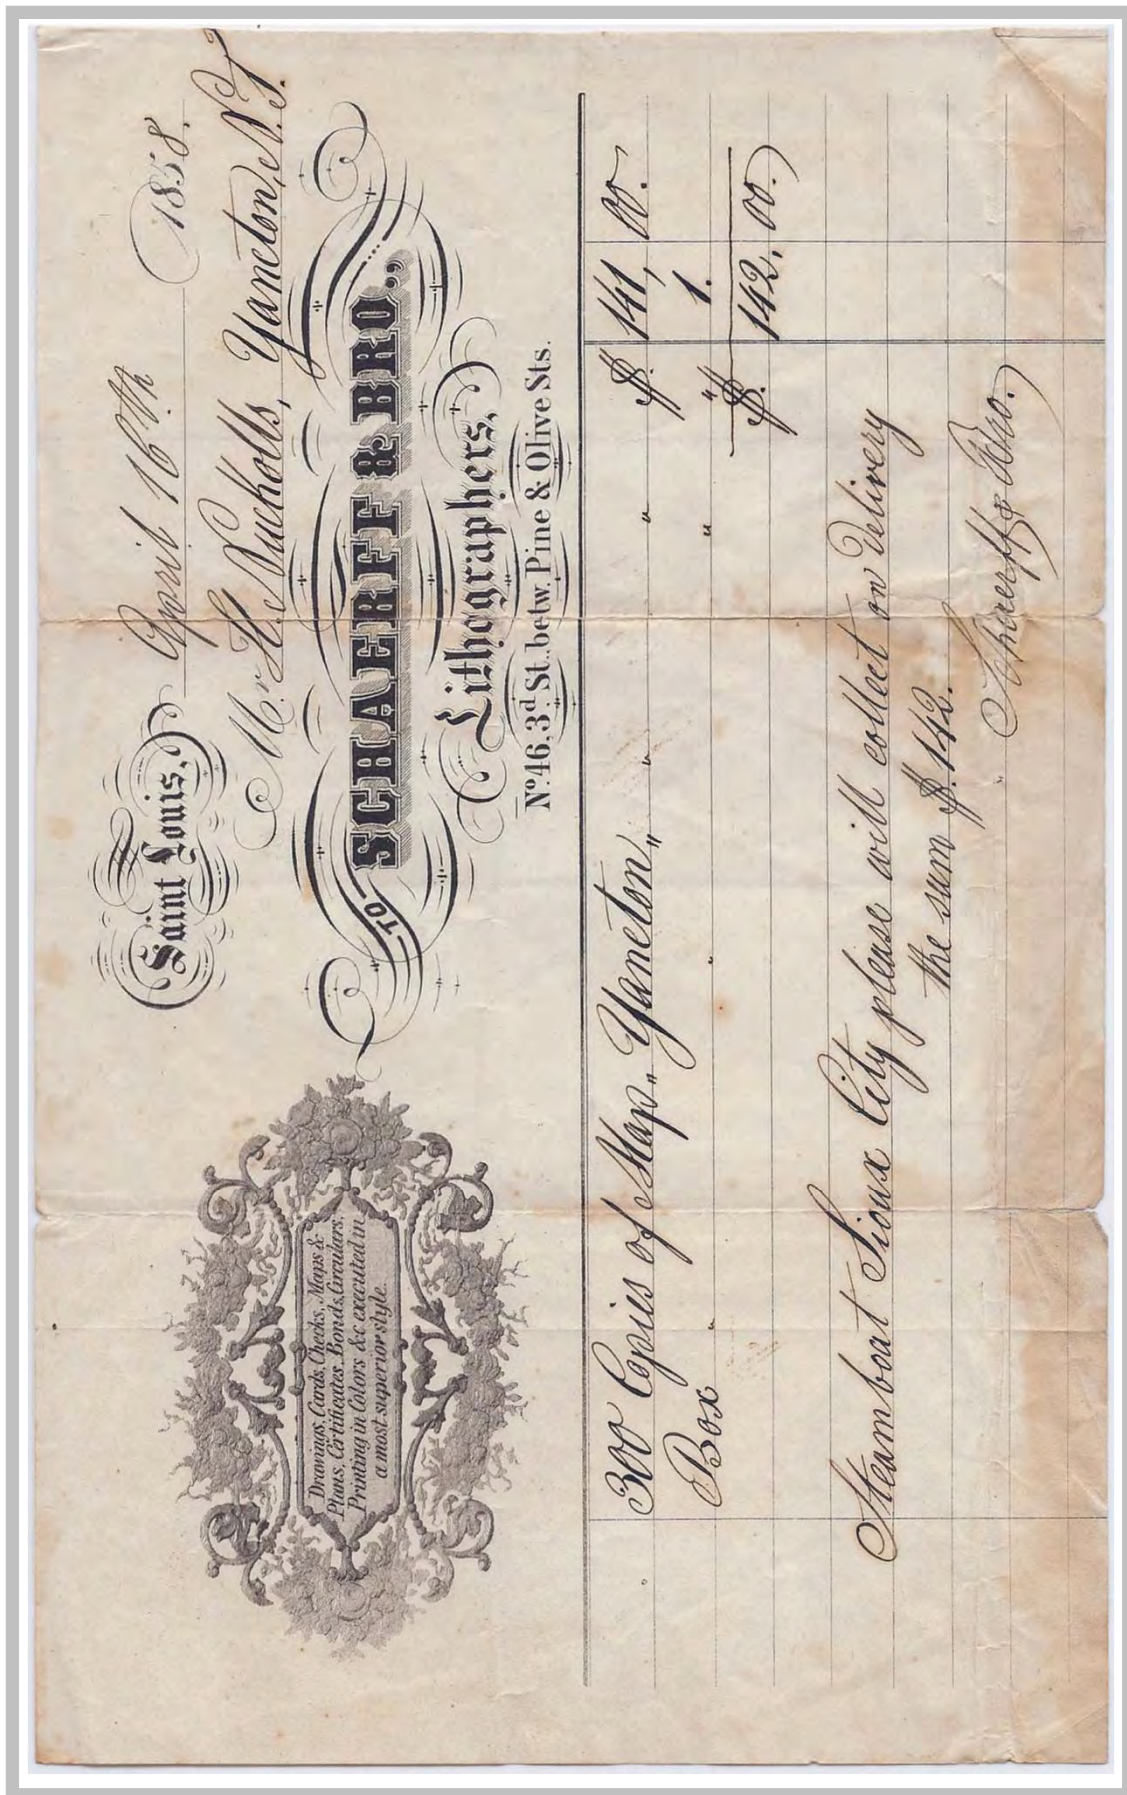 Saint Louis, April 16th 1858.
Mr H. Nuckolls, Yancton, N.T.
TO SCHAERFF & BRO.,
Lithographers,
No. 46, 3d St. betw. Pine & Olive Sts.
Drawings, Cards, Checks, Maps &
Plans, Certificates, Bonds, Circulars,
Printing in Colors &c executed in
a most superior style.
300 Copies of Map „Yancton„ " " $. 141, 00.
Box " " " " 1.
$. 142, 00.
Steamboat Sioux City please will collect on delivery
the sum $. 142.
Schaerff & Bro.